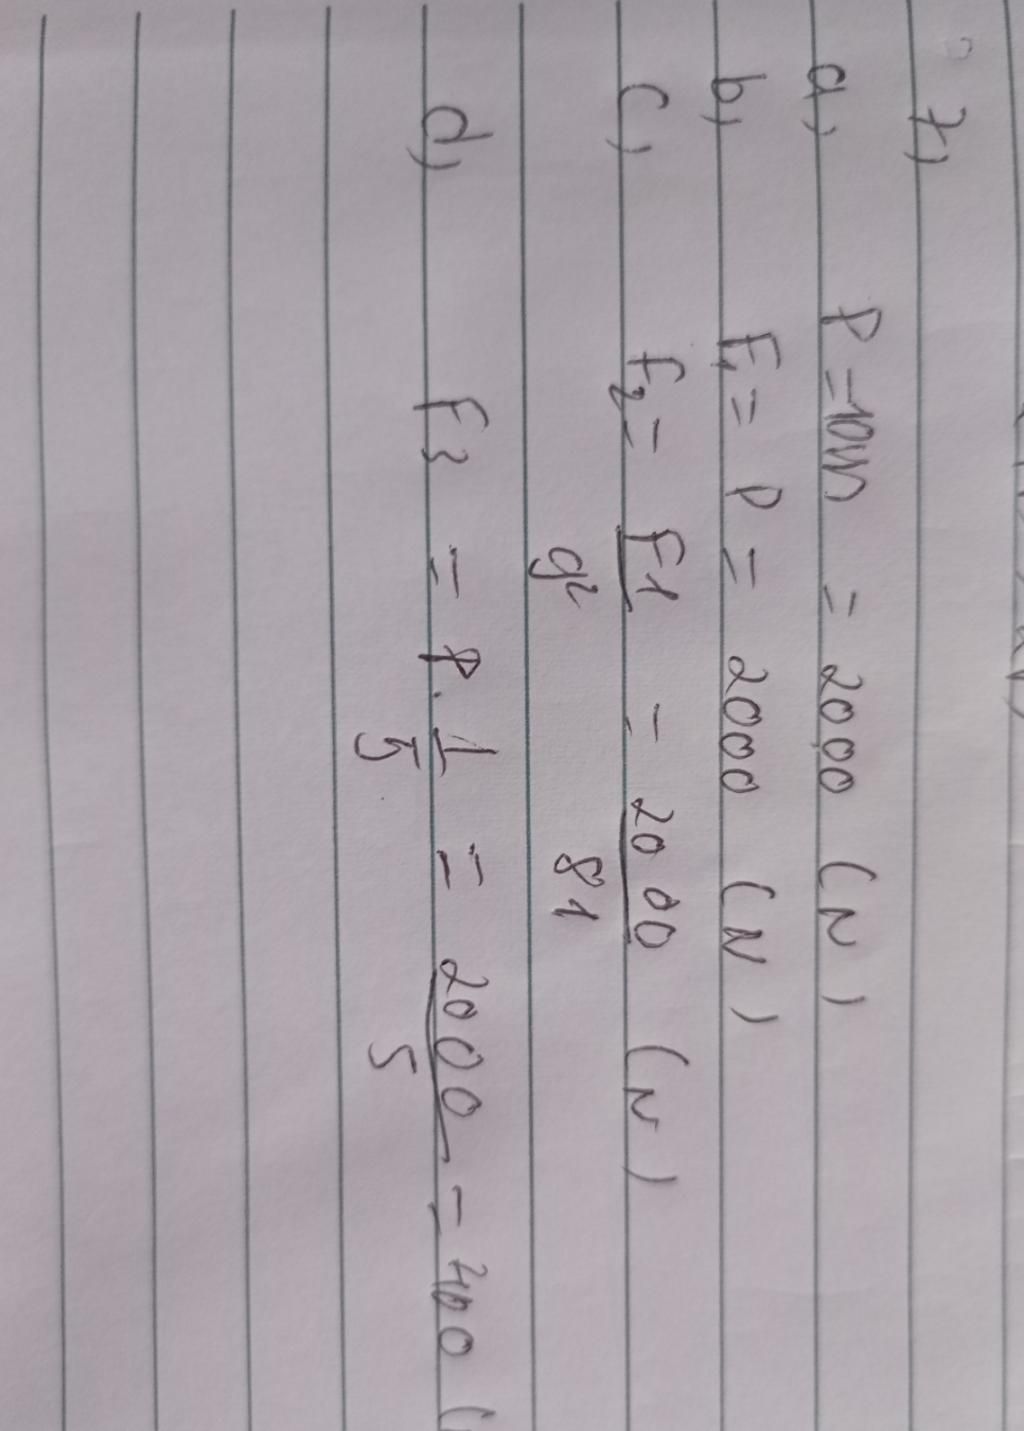 7)
a) P = 10m = 2000 (N)
b) F1 = P = 2000 (N)
c) F2 = F1 / 9² = 2000 / 81 (N)
d) F3 = P . 1 / 5 = 2000 / 5 = 400 (